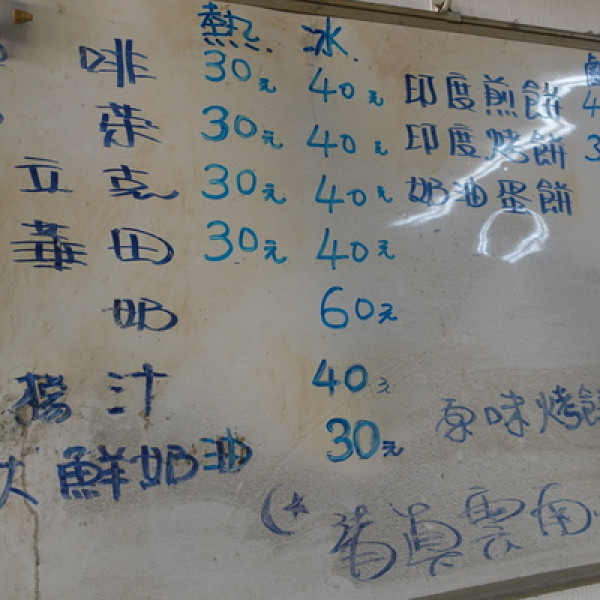 熱 冰
啡 30元 40元 印度煎餅 4
茶 30元 40元 印度烤餅 3
立克 30元 40元 奶油蛋餅
華田 30元 40元
奶 60元
汁 40元
30元 原味烤餅
鮮奶油
清真雲南